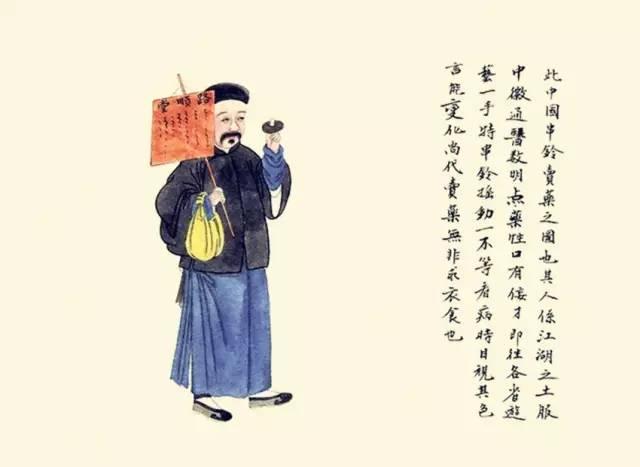 路順堂
此中國串鈴賣藥之圖也其人係江湖之士服
中徽通醫数明点藥性口有佞才即往各省遊
藝一手持串鈴摇動一不等看病時目視其色
言能變化尚代賣藥無非求衣食也